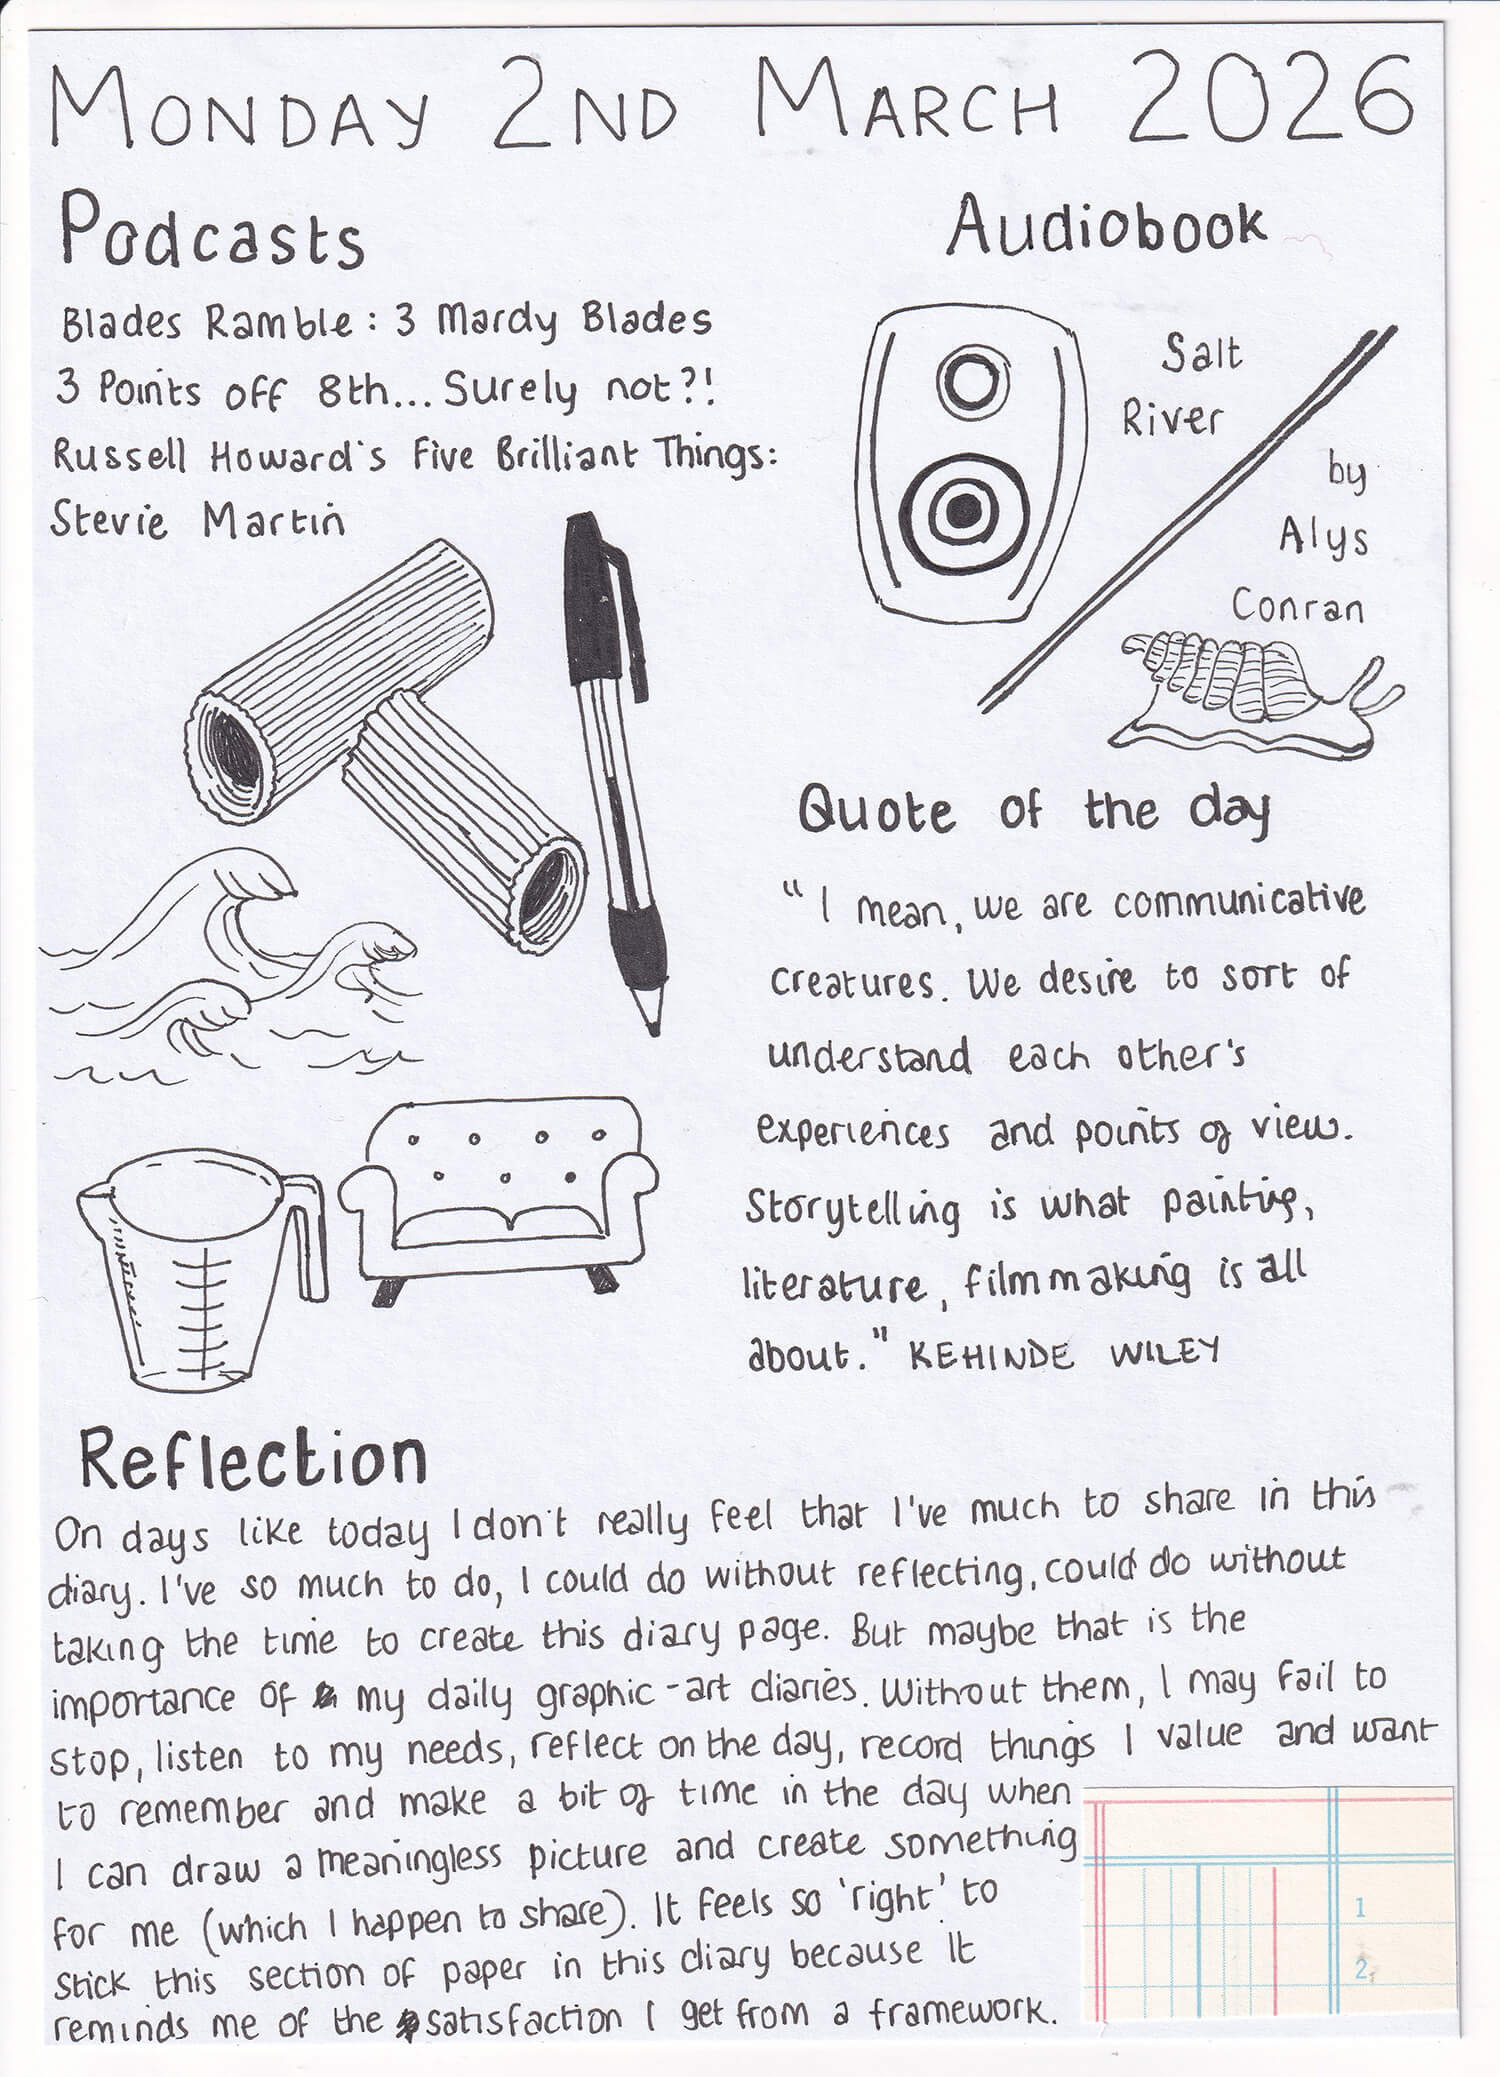 MONDAY 2ND MARCH 2026
Podcasts
Blades Ramble: 3 Mardy Blades
3 Points off 8th... Surely not?!
Russell Howard's Five Brilliant Things:
Stevie Martin
Audiobook
Salt
River
by
Alys
Conran
Quote of the day
"I mean, we are communicative
creatures. We desire to sort of
understand each other's
experiences and points of view.
Storytelling is what painting,
literature, filmmaking is all
about." KEHINDE WILEY
Reflection
On days like today I don't really feel that I've much to share in this
diary. I've so much to do, I could do without reflecting, could do without
taking the time to create this diary page. But maybe that is the
importance of my daily graphic-art diaries. Without them, I may fail to
stop, listen to my needs, reflect on the day, record things I value and want
to remember and make a bit of time in the day when
I can draw a meaningless picture and create something
for me (which I happen to share). It feels so 'right' to
stick this section of paper in this diary because it
reminds me of the satisfaction I get from a framework.
1
2